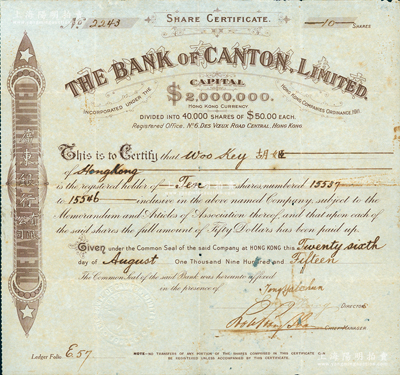 No 2243
SHARE CERTIFICATE.
10 SHARES
THE BANK OF CANTON, LIMITED.
INCORPORATED UNDER THE
HONG KONG COMPANIES ORDINANCE 1911.
CAPITAL
$2,000,000.
HONG KONG CURRENCY
DIVIDED INTO 40,000 SHARES OF $50.00 EACH.
Registered Office, No 6, DES VŒUX ROAD CENTRAL, HONG KONG
This is to Certify that Woo Key
of HongKong
is the registered holder of Ten shares, numbered 15537
to 15546 inclusive in the above named Company, subject to the
Memorandum and Articles of Association thereof, and that upon each of
the said shares the full amount of Fifty Dollars has been paid up.
Given under the Common Seal of the said Company at HONG KONG this Twenty sixth
day of August One Thousand Nine Hundred and Fifteen
The Common Seal of the said Bank was hereunto affixed
in the presence of
DIRECTOR
CHIEF MANAGER
Ledger Folio E.57
NOTE:—NO TRANSFERS OF ANY PORTION OF THE SHARES COMPRISED IN THIS CERTIFICATE CAN
BE REGISTERED UNLESS ACCOMPANIED BY THIS CERTIFICATE.